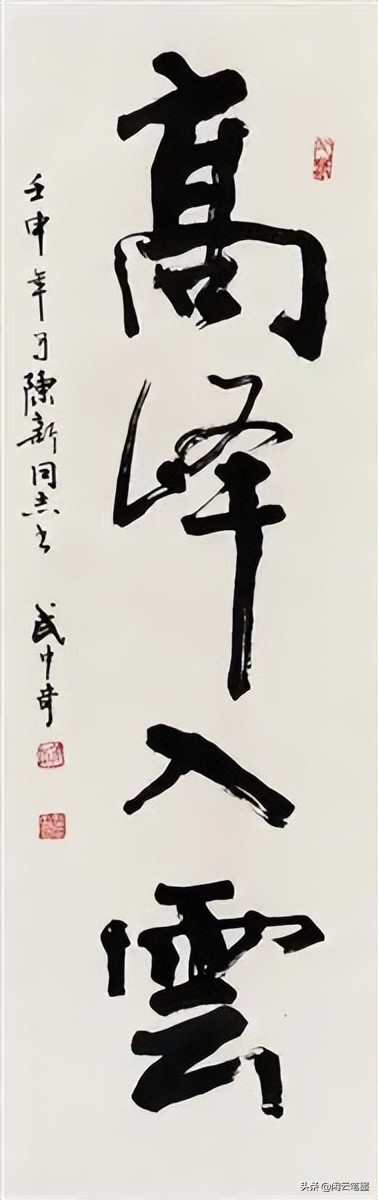 高峰入雲
壬申年可陳新同志書
武中奇
头条@闲云笔墨